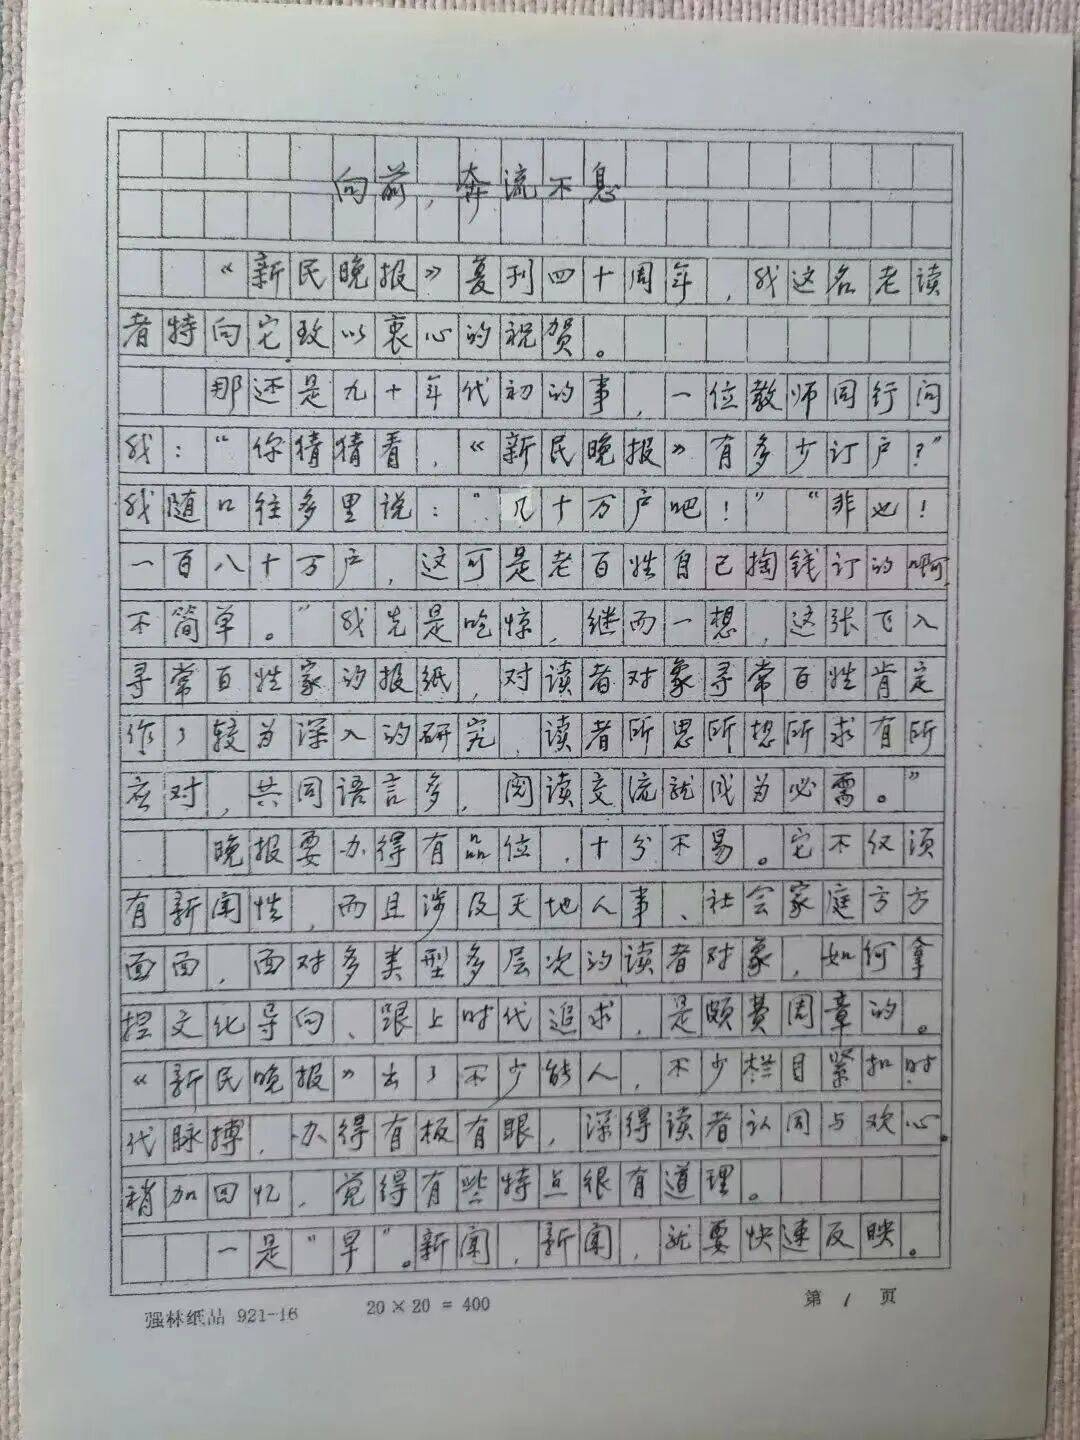 向前，奔流不息
《新民晚报》复刊四十周年，我这名老读
者特向它致以衷心的祝贺。
那还是九十年代初的事，一位教师同行问
我：“你猜猜看，《新民晚报》有多少订户？”
我随口往多里说：“几十万户吧！”“非也！
一百八十万户，这可是老百姓自己掏钱订的啊，
不简单。”我先是吃惊，继而一想，这张飞入
寻常百姓家的报纸，对读者对象寻常百姓肯定
作了较为深入的研究，读者所思所想所求有所
应对，共同语言多，阅读交流就成为必需。”
晚报要办得有品位，十分不易。它不仅须
有新闻性，而且涉及天地人事、社会家庭方方
面面，面对多类型多层次的读者对象，如何拿
捏文化导向、跟上时代追求，是颇费周章的。
《新民晚报》出了不少能人，不少栏目紧扣时
代脉搏，办得有板有眼，深得读者认同与欢心。
稍加回忆，觉得有些特点很有道理。
一是“早”。新闻，新闻，就要快速反映。
强林纸品 921-16 20×20=400 第 1 页